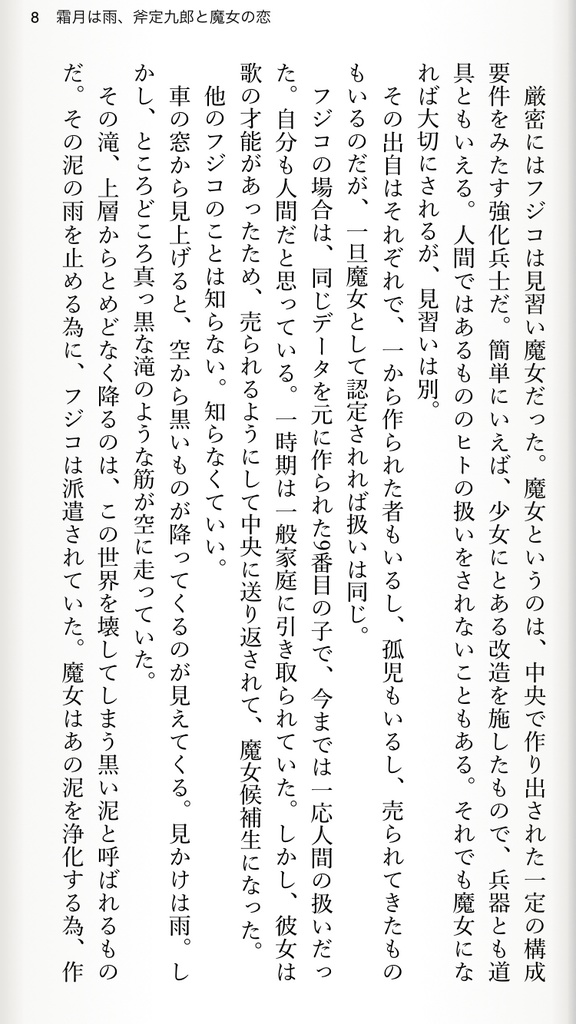 8 霜月は雨、斧定九郎と魔女の恋
　厳密にはフジコは見習い魔女だった。魔女というのは、中央で作り出された一定の構成
要件をみたす強化兵士だ。簡単にいえば、少女にとある改造を施したもので、兵器とも道
具ともいえる。人間ではあるもののヒトの扱いをされないこともある。それでも魔女にな
れば大切にされるが、見習いは別。
　その出自はそれぞれで、一から作られた者もいるし、孤児もいるし、売られてきたもの
もいるのだが、一旦魔女として認定されれば扱いは同じ。
　フジコの場合は、同じデータを元に作られた9番目の子で、今までは一応人間の扱いだっ
た。自分も人間だと思っている。一時期は一般家庭に引き取られていた。しかし、彼女は
歌の才能があったため、売られるようにして中央に送り返されて、魔女候補生になった。
　他のフジコのことは知らない。知らなくていい。
　車の窓から見上げると、空から黒いものが降ってくるのが見えてくる。見かけは雨。し
かし、ところどころ真っ黒な滝のような筋が空に走っていた。
　その滝、上層からとめどなく降るのは、この世界を壊してしまう黒い泥と呼ばれるもの
だ。その泥の雨を止める為に、フジコは派遣されていた。魔女はあの泥を浄化する為、作